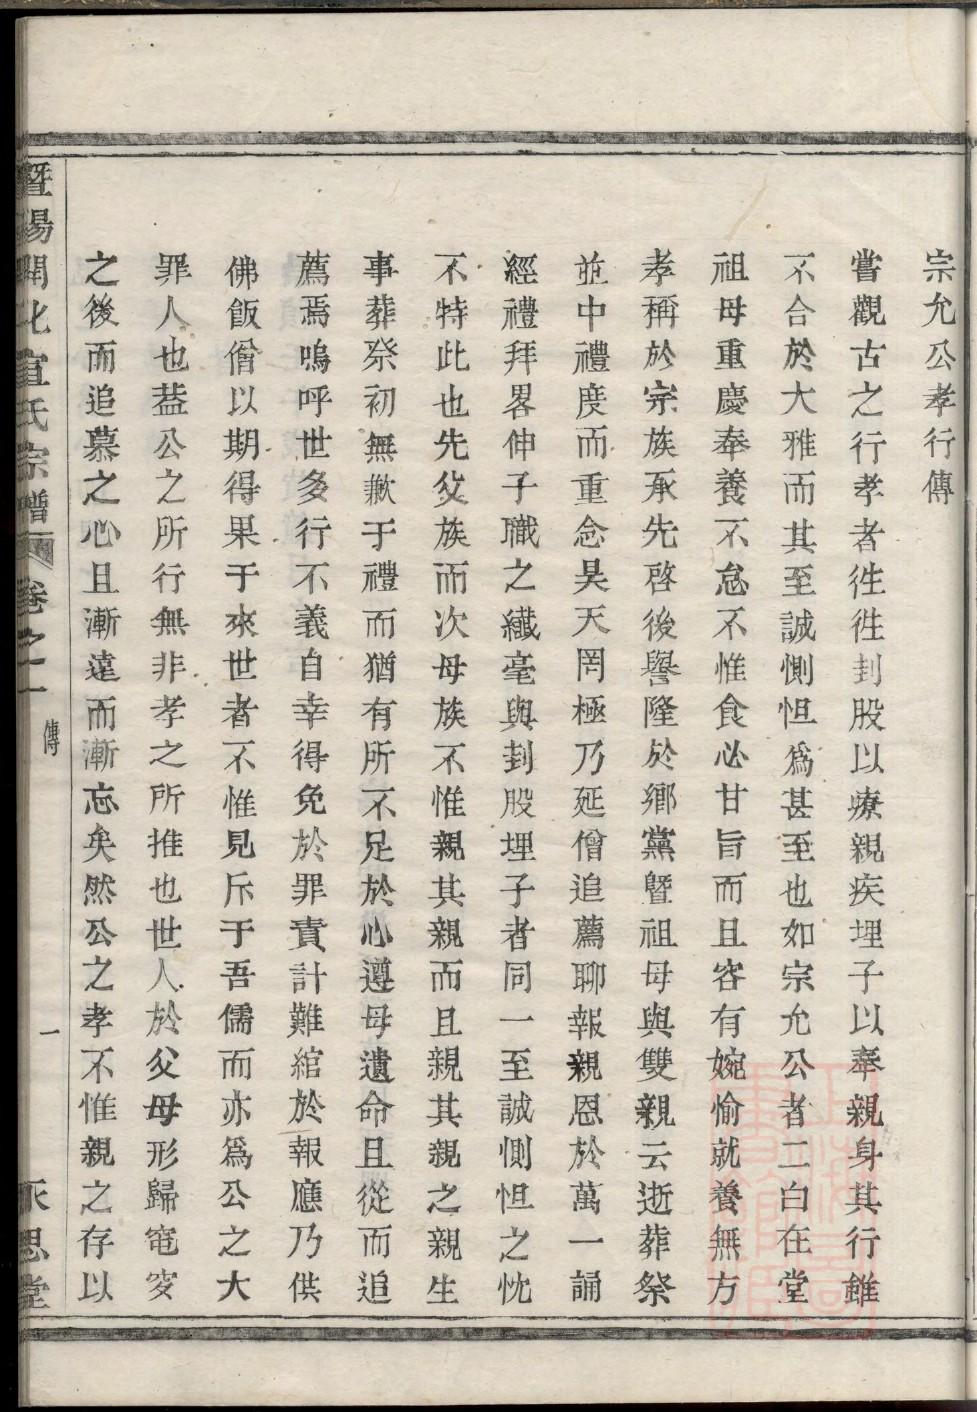 宗允公孝行傳
嘗觀古之行孝者徃徃刲股以療親疾埋子以奉親身其行雖
不合於大雅而其至誠惻怛爲甚至也如宗允公者二白在堂
祖母重慶奉養不怠不惟食必甘旨而且容有婉愉就養無方
孝稱於宗族承先啓後譽隆於鄉黨曁祖母與雙親云逝葬祭
並中禮度而重念昊天罔極乃延僧追薦聊報親恩於萬一誦
經禮拜畧伸子職之纖毫與刲股埋子者同一至誠惻怛之忱
不特此也先父族而次母族不惟親其親而且親其親之親生
事葬祭初無歉于禮而猶有所不足於心遵母遺命且從而追
薦焉嗚呼世多行不義自幸得免於罪責計難綰於報應乃供
佛飯僧以期得果于來世者不惟見斥于吾儒而亦爲公之大
罪人也葢公之所行無非孝之所推也世人於父母形歸窀穸
之後而追慕之心且漸遠而漸忘矣然公之孝不惟親之存以
暨陽開化宣氏宗譜 卷之一 傳 一 永思堂